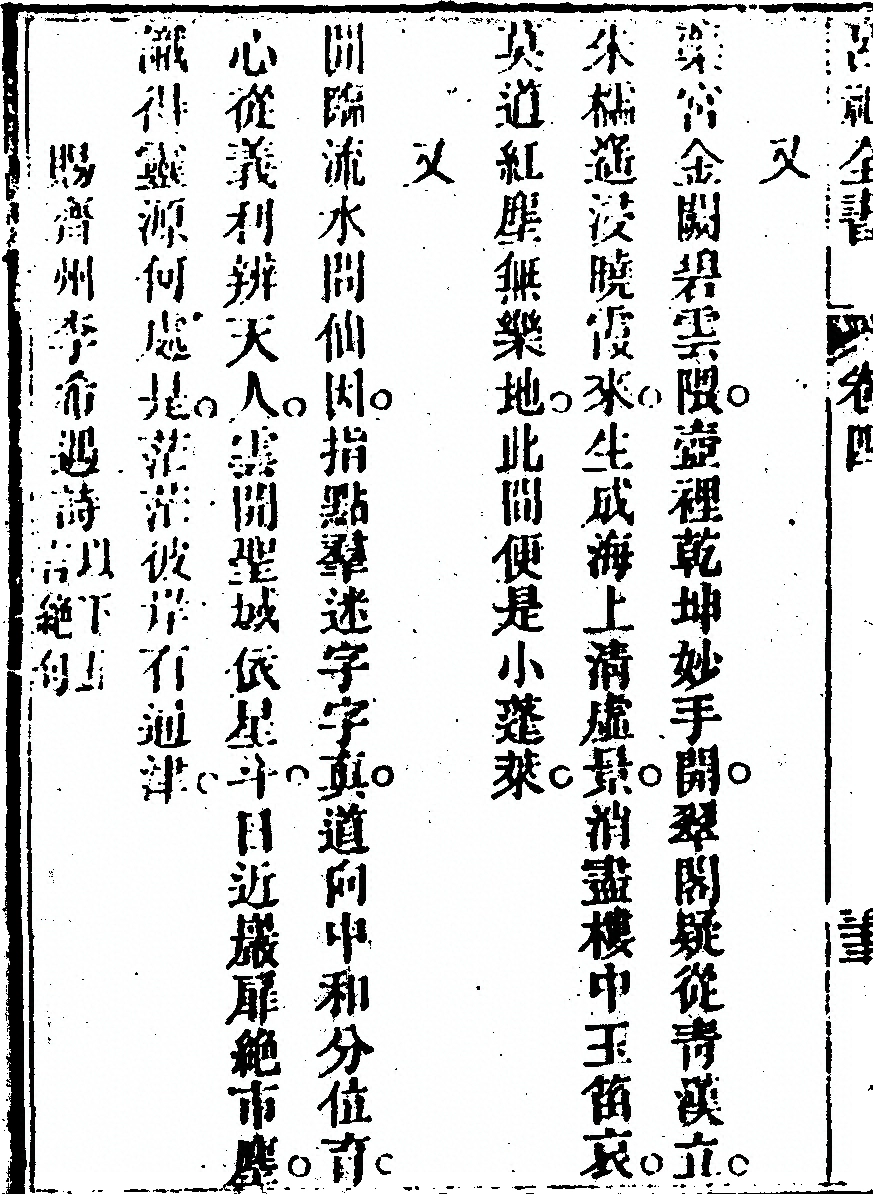 呂祖全書 卷四
又
宮金闕碧雲隈○壺裡乾坤妙手開○翠閣疑從青漢立○
朱橋遥浸曉霞來○生成海上清虛景○消盡樓中玉笛哀○
莫道紅塵無樂地○此間便是小蓬萊○
又
閒臨流水問仙因○指點羣迷字字真○道向中和分位育○
心從義利辨天人○雲開聖域依星斗○日近巖扉絶市塵○
識得靈源何處是○茫茫彼岸有通津○
賜齊州李希遇詩 以下五言絶句